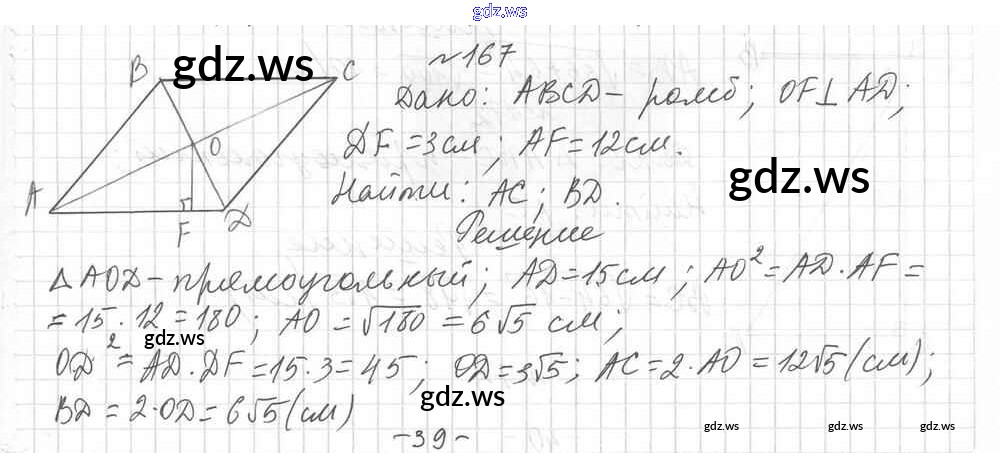 gdz.ws
№167
B C gdz.ws
Дано: ABCD – ромб; OF⊥AD;
O
DF = 3см; AF = 12см.
gdz.ws
A F D
Найти: AC; BD.
Решение
△AOD – прямоугольный; AD = 15см; AO² = AD·AF =
= 15·12 = 180; AO = √180 = 6√5 см;
gdz.ws
OD² = AD·DF = 15·3 = 45; OD = 3√5; AC = 2·AO = 12√5 (см);
BD = 2·OD = 6√5 (см)
gdz.ws
-39-
gdz.ws gdz.ws gdz.ws